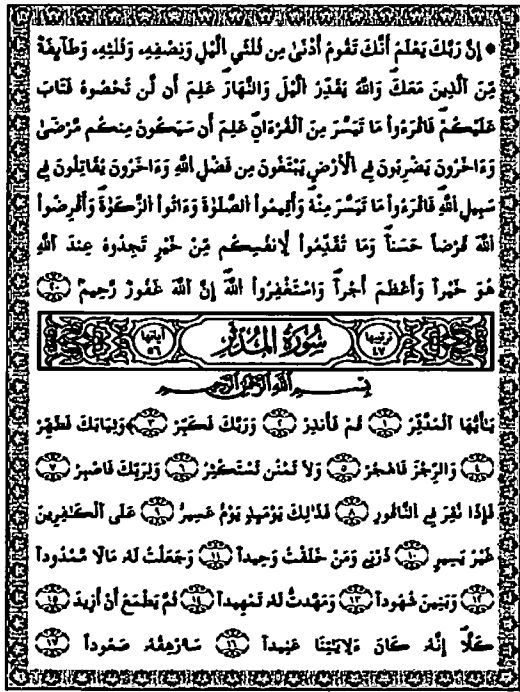 * إِنَّ رَبَّكَ يَعْلَمُ أَنَّكَ تَقُومُ أَدْنَىٰ مِن ثُلُثَيِ اِلَيْلِ وَنِصْفِهِۦ وَثُلُثِهِۦ وَطَآئِفَةٌ
مِّنَ اَلَّذِينَ مَعَكَۖ وَاللَّهُ يُقَدِّرُ اُلَيْلَ وَالنَّهَارَۖ عَلِمَ أَن لَّن تُحْصُوهُ فَتَابَ
عَلَيْكُمْۖ فَاقْرَءُواْ مَا تَيَسَّرَ مِنَ اَلْقُرْءَانِۖ عَلِمَ أَن سَيَكُونُ مِنكُم مَّرْضَىٰ
وَءَاخَرُونَ يَضْرِبُونَ فِے اِلْأَرْضِ يَبْتَغُونَ مِن فَضْلِ اِللَّهِ وَءَاخَرُونَ يُقَٰتِلُونَ فِے
سَبِيلِ اِللَّهِۖ فَاقْرَءُواْ مَا تَيَسَّرَ مِنْهُۖ وَأَقِيمُواْ اُلصَّلَوٰةَ وَءَاتُواْ اُلزَّكَوٰةَۖ وَأَقْرِضُواْ
اُللَّهَ قَرْضاً حَسَناًۖ وَمَا تُقَدِّمُواْ لِأَنفُسِكُم مِّنْ خَيْرٍ تَجِدُوهُ عِندَ اَللَّهِ
هُوَ خَيْراً وَأَعْظَمَ أَجْراًۖ وَاسْتَغْفِرُواْ اُللَّهَۖ إِنَّ اَللَّهَ غَفُورٌ رَّحِيمٌ ٢٠
ترتيبها ٤٧ سُورَةُ الْمُدَّثِّرِ آياتها ٥٦
بِسْمِ اللَّهِ الرَّحْمَٰنِ الرَّحِيمِ
يَٰأَيُّهَا اَلْمُدَّثِّرُ ١ قُمْ فَأَنذِرْ ٢ وَرَبَّكَ فَكَبِّرْ ٣ وَثِيَابَكَ فَطَهِّرْ
٤ وَالرِّجْزَ فَاهْجُرْ ٥ وَلَا تَمْنُن تَسْتَكْثِرُ ٦ وَلِرَبِّكَ فَاصْبِرْ ٧
فَإِذَا نُقِرَ فِے اِلنَّاقُورِ ٨ فَذَٰلِكَ يَوْمَئِذٍ يَوْمٌ عَسِيرٌ ٩ عَلَى اَلْكَٰفِرِينَ
غَيْرُ يَسِيرٍ ١٠ ذَرْنِے وَمَنْ خَلَقْتُ وَحِيداً ١١ وَجَعَلْتُ لَهُۥ مَالًا مَّمْدُوداً
١٢ وَبَنِينَ شُهُوداً ١٣ وَمَهَّدتُّ لَهُۥ تَمْهِيداً ١٤ ثُمَّ يَطْمَعُ أَنْ أَزِيدَ ١٥
كَلَّاۖ إِنَّهُۥ كَانَ ءَلِايَٰتِنَا عَنِيداً ١٦ سَأُرْهِقُهُۥ صَعُوداً ١٧